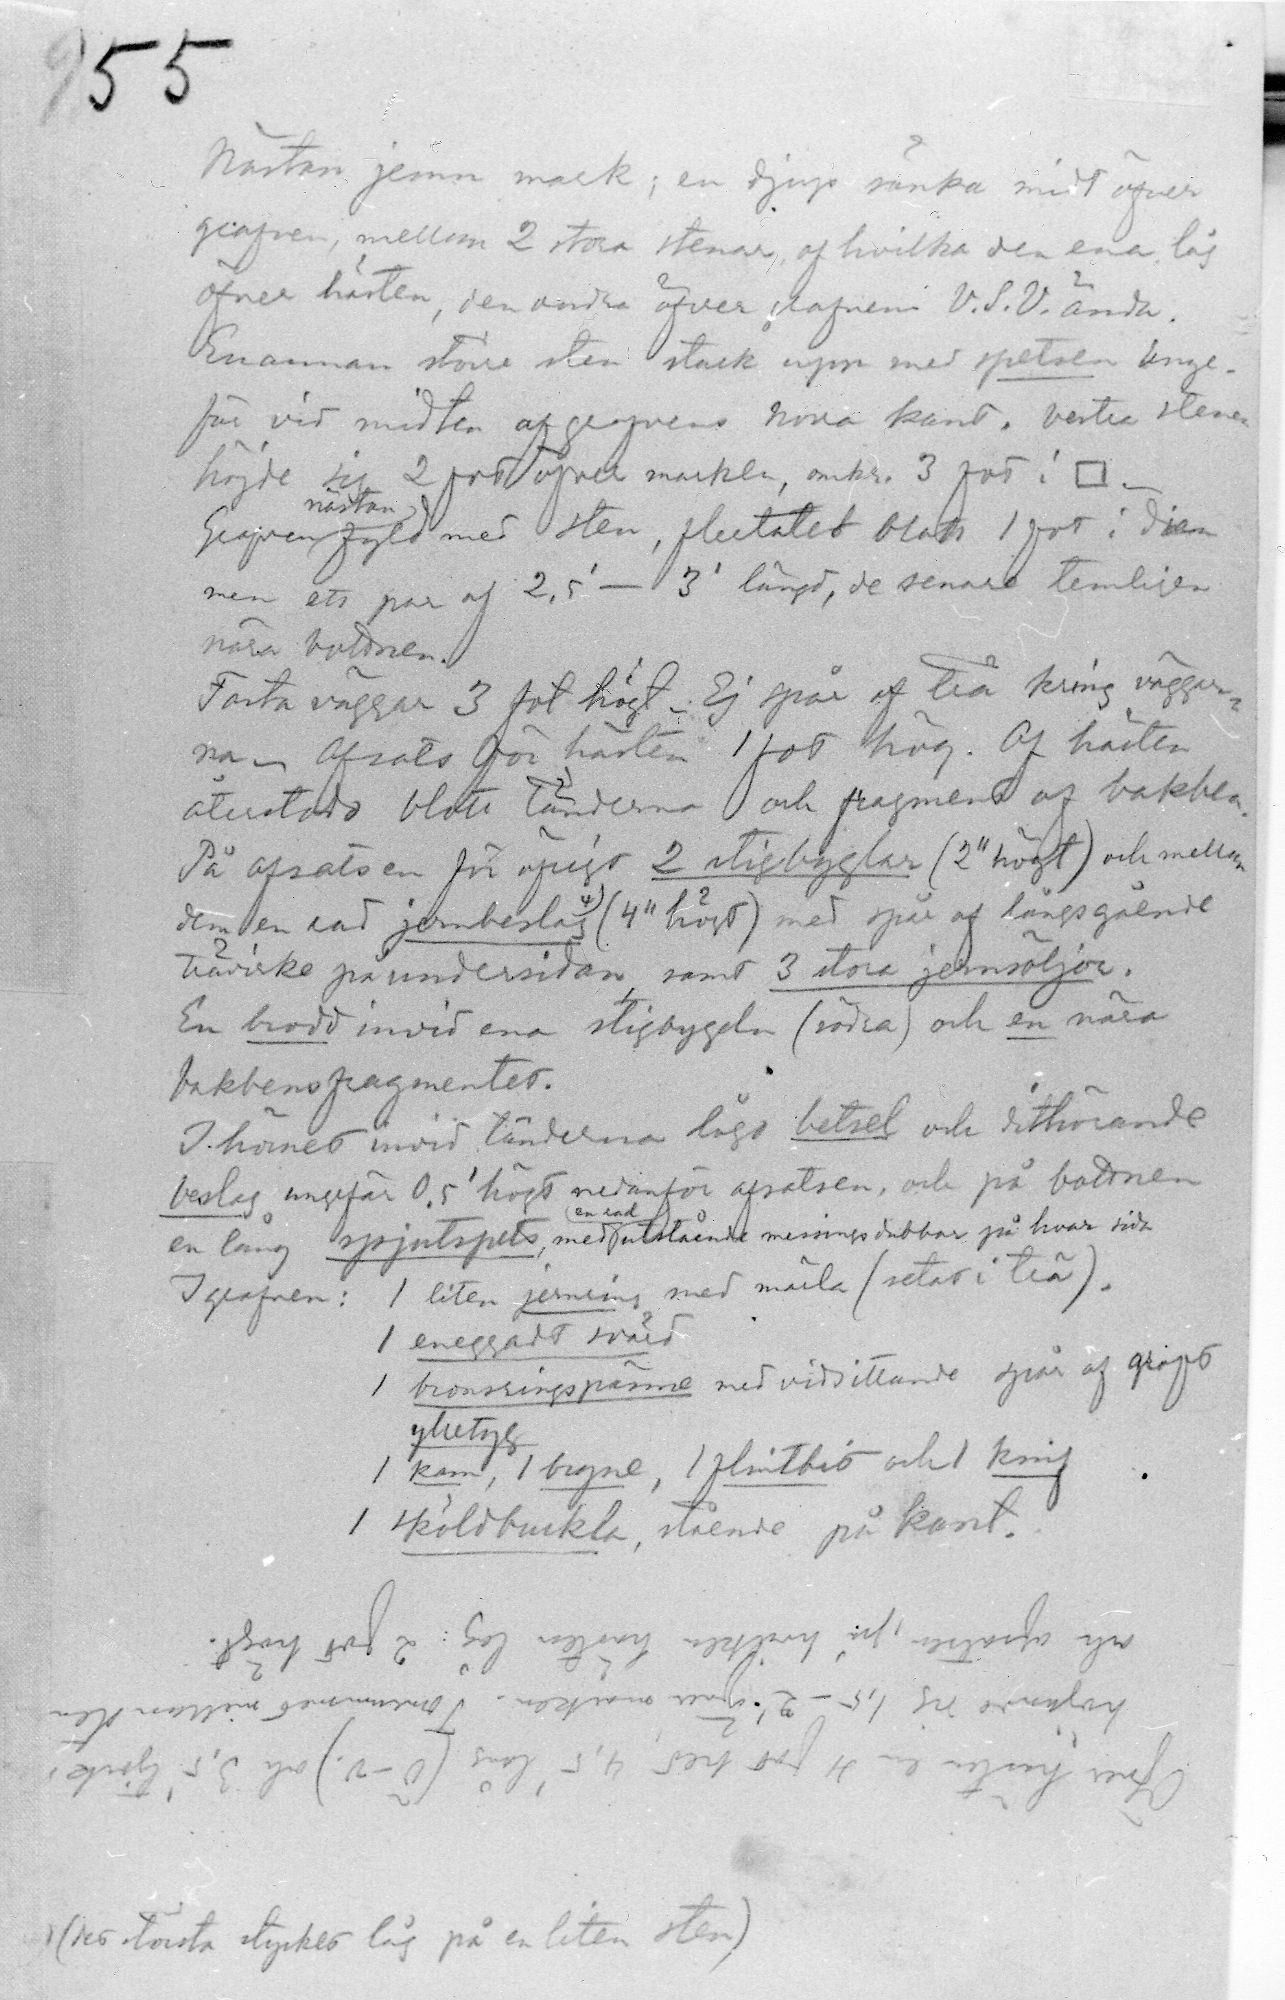 955
Nästan jemn mark; en djup sänka midt öfver
grafven, mellan 2 stora stenar, af hvilka den ena låg
öfver hästen, den andra öfver grafvens V.S.V. ända.
En annan större sten stack upp med spetsen unge-
fär vid midten af grafvens norra kant. Vestra stenen
höjde sig 2 fot öfver marken, omkr. 3 fot i □ –
Grafven nästan fyld med sten, flertalet blott 1 fot i diam
men ett par af 2,5' – 3' längd, de senare temligen
nära bottnen.
Fasta väggar 3 fot högt – Ej spår af trä kring väggar-
na – Afsats för hästen 1 fot hög. Af hästen
återstodo blott tänderna och fragment af bakben.
På afsatsen för öfrigt 2 stigbyglar (2" högt) och mellan
dem en rad jernbeslag 4) (4" högt) med spår af långsgående
trävirke på undersidan, samt 3 stora jernsöljor.
En brodd invid ena stigbygeln (södra) och en nära
bakbensfragmentet.
I hörnet invid tänderna lågo betsel och dithörande
beslag ungefär 0,5' högt nedanför afsatsen, och på bottnen
en lång spjutspets, med en rad utstående messingsdubbar på hvar sida
I grafven: 1 liten jernring med märla (setat i trä).
1 eneggadt svärd
1 bronsringspänne med vidsittande spår af gröft
ylletyg
1 kam, 1 bryne, 1 flintbit och 1 knif
1 sköldbuckla, stående på kant.
Öfver hästen en 4 fot bred, 4,5' lång (Ö–V.) och 3,5' tjock,
höjande sig 1,5 – 2' öfver marken. Tomrummet mellan sten
och afsatsen, på hvilken hästen låg: 2 fot högt.
(det största stycket låg på en liten sten)